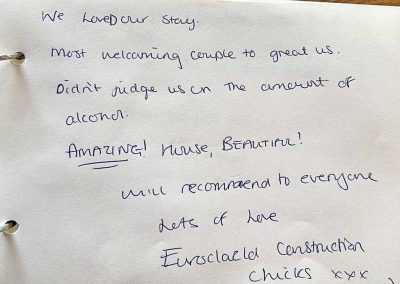 We Loved our stay.
Most welcoming couple to great us.
Didn't judge us on the amount of
alcohol.
AMAZING! House, BEAUTIFUL!
Will recommend to everyone
Lots of Love
Euroclad Construction
Chicks xxx